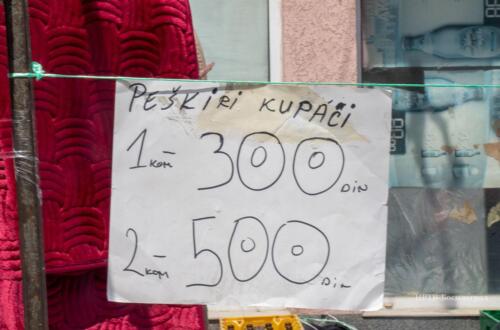 PEŠKIRI KUPAĆI
1 KOM – 300 DIN
2 KOM – 500 Din